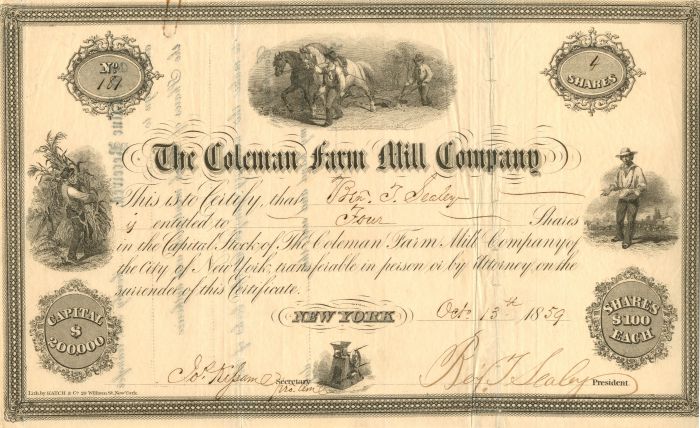 No
181
4
SHARES
The Coleman Farm Mill Company
This is to Certify, that Ben. T. Sealey
is entitled to Four Shares
in the Capital Stock of The Coleman Farm Mill Company of
the City of New York, transferable in person or by Attorney, on the
surrender of this Certificate.
CAPITAL
$
200.000
SHARES
$100
EACH
NEW YORK
Octo 13th 1859
Jos. Kissam Secretary
Pro. Tem
Ben T Sealey President.
Lith. by HATCH & Co. 29 William St. New York.